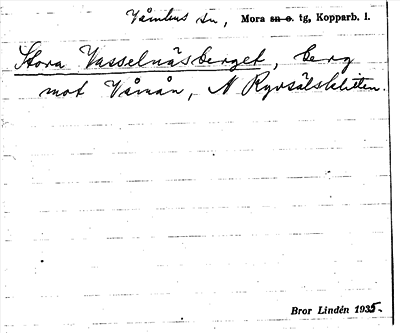 Våmhus sn, Mora sn o. tg, Kopparb. l.
Stora Vasselnäsberget, berg
mot Våmån, N Ryssälsklitten.
Bror Lindén 1935.